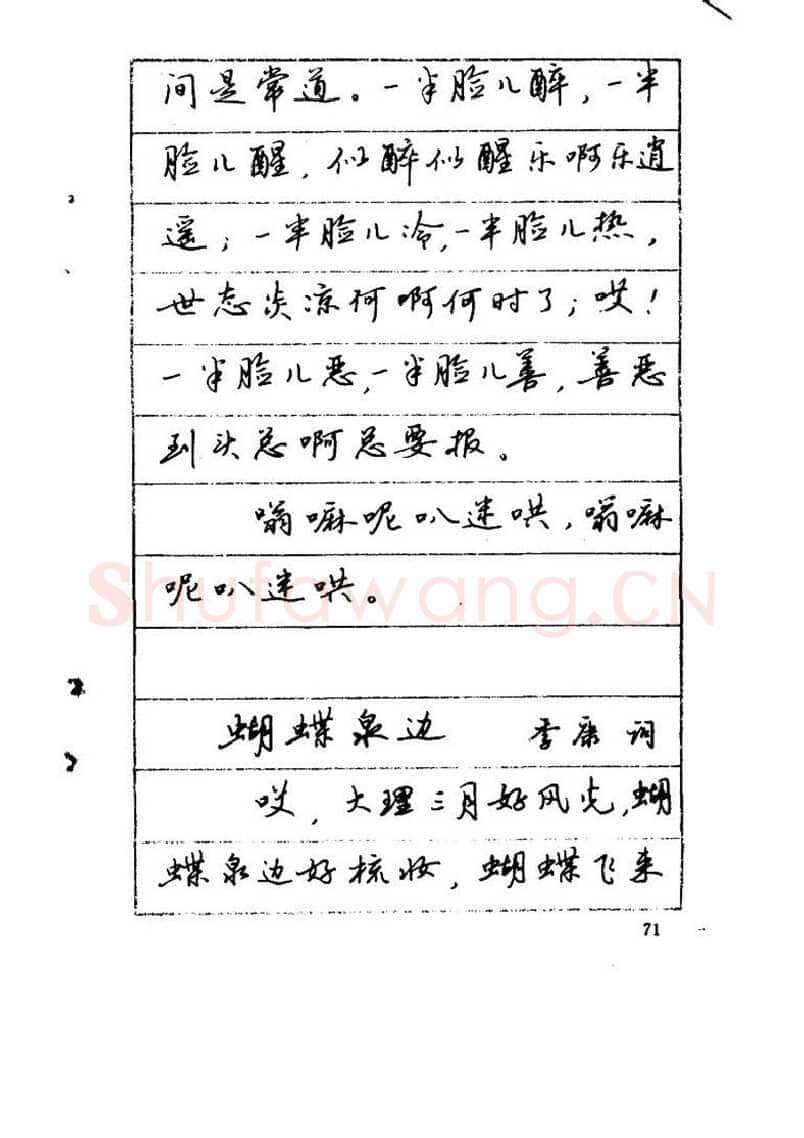 间是常道。一半脸儿醉,一半
脸儿醒,似醉似醒乐啊乐逍
遥;一半脸儿冷,一半脸儿热,
世态炎凉何啊何时了;哎!
一半脸儿恶,一半脸儿善,善恶
到头总啊总要报。
嗡嘛呢叭迷哄,嗡嘛
呢叭迷哄。
Shufawang.CN
蝴蝶泉边 李康 词
哎,大理三月好风光,蝴
蝶泉边好梳妆,蝴蝶飞来
71